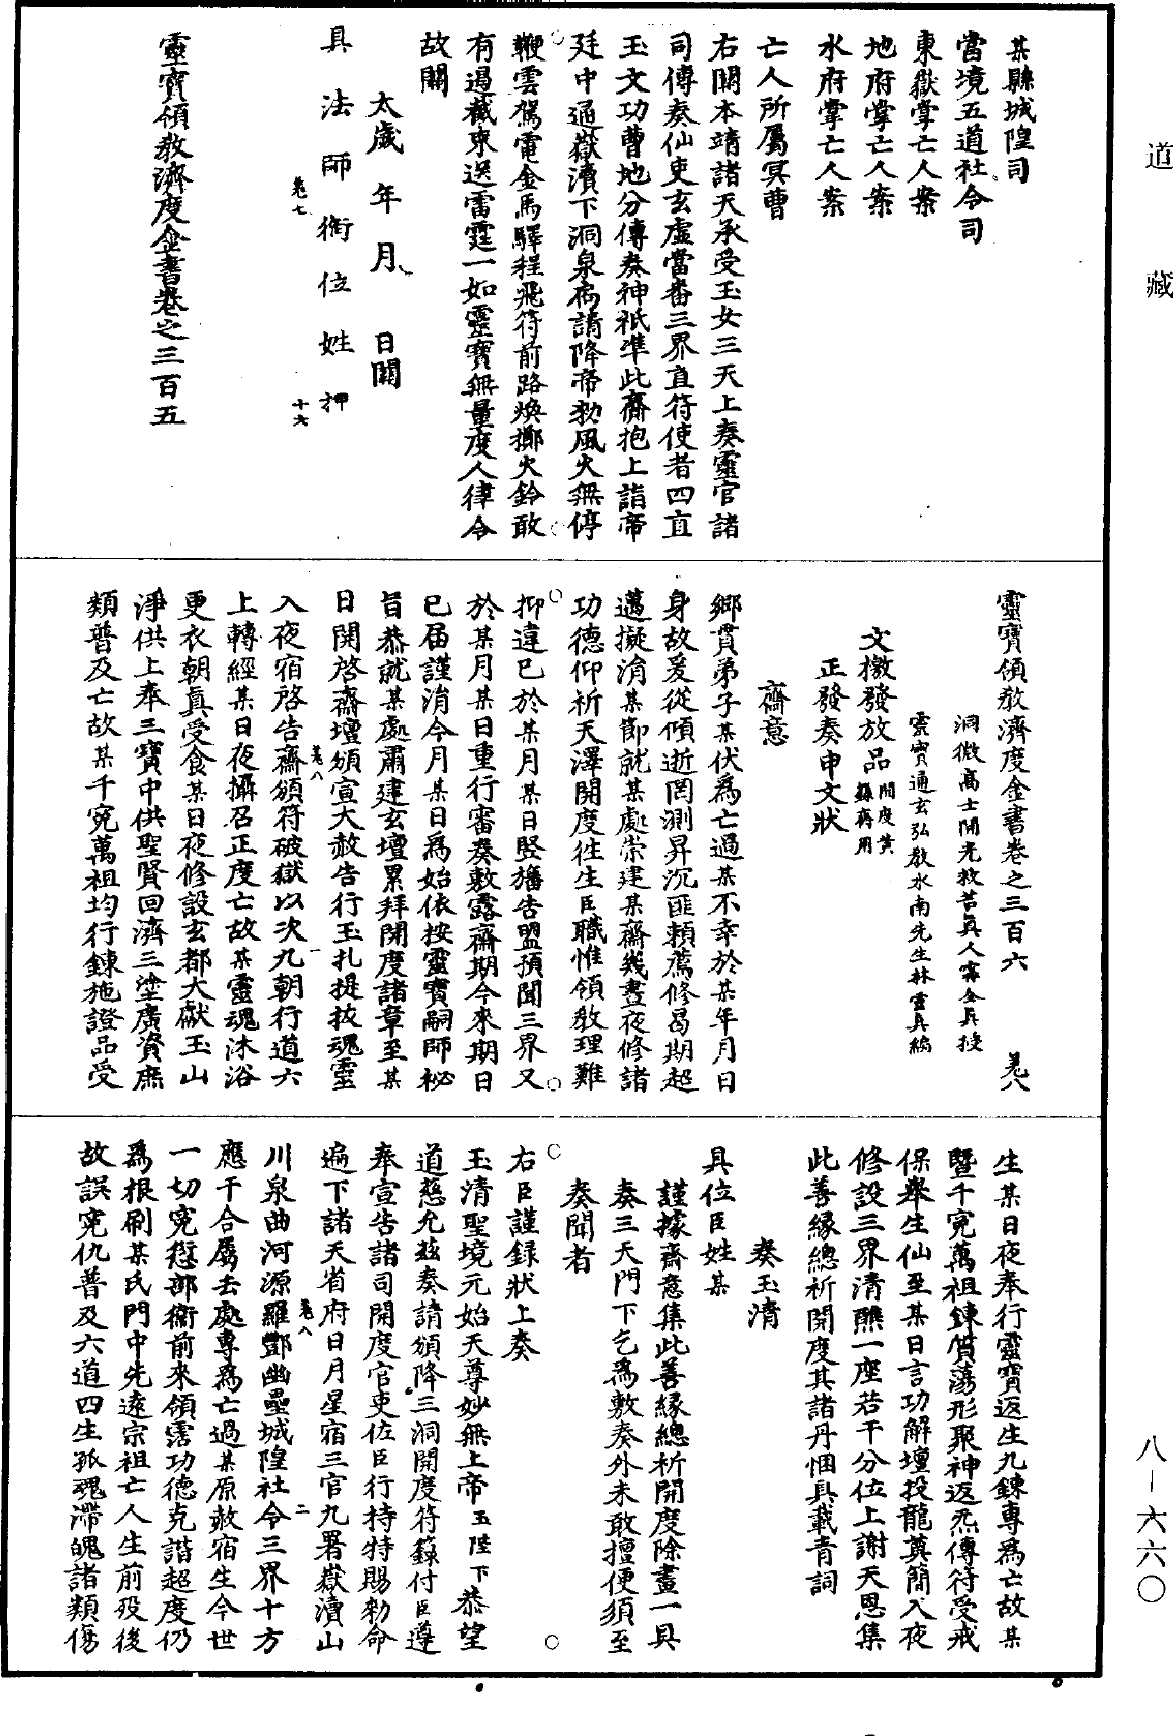 道藏
某縣城隍司
當境五道社令司
東嶽掌亡人案
地府掌亡人案
水府掌亡人案
亡人所屬冥曹
右關本靖諸天承受玉女三天上奏靈官諸
司傳奏仙吏玄虛當番三界直符使者四直
玉文功曹地分傳奏神祇準此齎抱上詣帝
廷中通嶽瀆下洞泉扃請降帝勑風火無停
鞭雲駕電金馬驛程飛符前路煥擲火鈴敢
有遏截束送雷霆一如靈寶無量度人律令
故關
太歲年月日關
具法師銜位姓押
卷七 十六
靈寶領教濟度金書卷之三百五
靈寶領教濟度金書卷之三百六 卷八
洞微高士開光救苦真人甯全真授
靈寶通玄弘教水南先生林靈真編
文檄發放品 開度黃籙齋用
正發奏申文狀
齋意
鄉貫弟子某伏為亡過某不幸於某年月日
身故爰從傾逝罔測昇沉匪賴薦修曷期超
邁擬消某節就某處崇建某齋幾晝夜修諸
功德仰祈天澤開度往生臣職惟領教理難
抑違已於某月某日竪旛告盟預聞三界又
於某月某日重行審奏敷露齋期今來期日
已屆謹消今月某日為始依按靈寶嗣師祕
旨恭就某處肅建玄壇累拜開度諸章至某
日開啓齋壇頒宣大赦告行玉札提拔魂靈
卷八 一
入夜宿啓告齋頒符破獄以次九朝行道六
上轉經某日夜攝召正度亡故某靈魂沐浴
更衣朝真受食某日夜修設玄都大獻玉山
淨供上奉三寶中供聖賢回濟三塗廣資庶
類普及亡故某千寃萬祖均行鍊施證品受
生某日夜奉行靈寶返生九鍊專為亡故某
暨千寃萬祖鍊質蕩形聚神返炁傳符受戒
保舉生仙至某日言功解壇投龍奠簡入夜
修設三界清醮一座若干分位上謝天恩集
此善緣總祈開度其諸丹悃具載青詞
奏玉清
具位臣姓某
謹據齋意集此善緣總祈開度除畫一具
奏三天門下乞為敷奏外未敢擅便須至
奏聞者
右臣謹錄狀上奏
玉清聖境元始天尊妙無上帝玉陛下恭望
道慈允兹奏請頒降三洞開度符籙付臣遵
奉宣告諸司開度官吏佐臣行持特賜勑命
遍下諸天省府日月星宿三官九署嶽瀆山
卷八 二
川泉曲河源羅酆幽壘城隍社令三界十方
應干合屬去處專為亡過某原赦宿生今世
一切寃愆部衞前來領霑功德克諧超度仍
為根刷某氏門中先遠宗祖亡人生前殁後
故誤寃仇普及六道四生孤魂滯魄諸類傷
八–六六〇